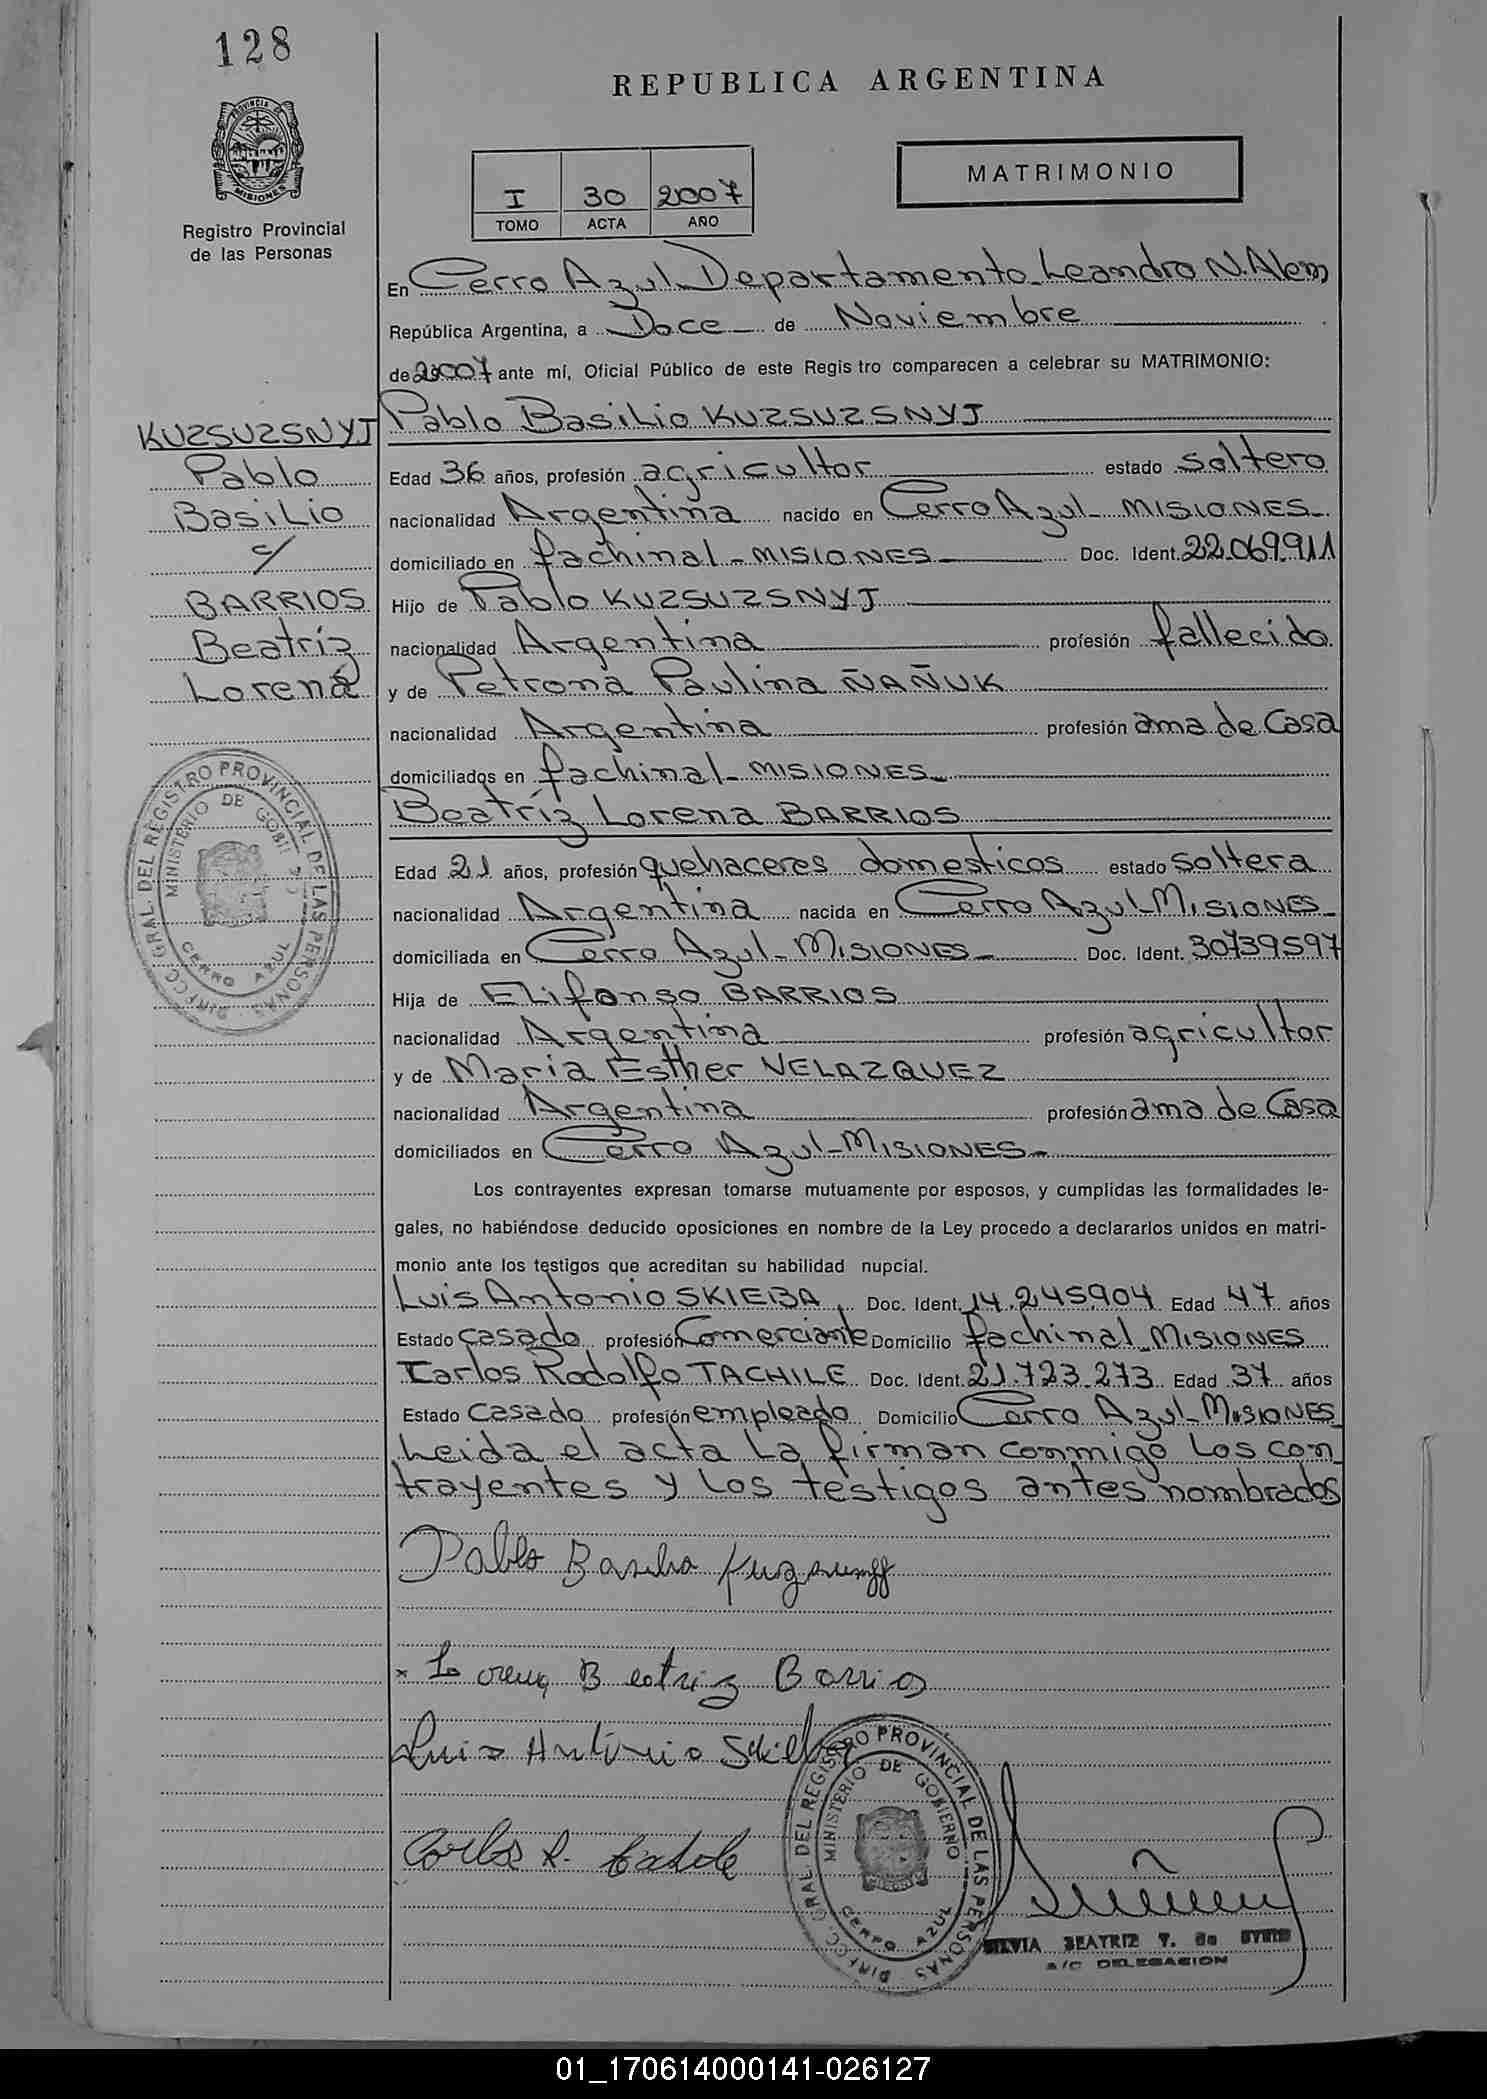 128
REPUBLICA ARGENTINA
PROVINCIA DE MISIONES
Registro Provincial
de las Personas
I 30 2007
TOMO ACTA AÑO
MATRIMONIO
En Cerro Azul Departamento Leandro N. Alem
República Argentina, a Doce de Noviembre
de 2007 ante mí, Oficial Público de este Regis tro comparecen a celebrar su MATRIMONIO:
KUZSUZSNYJ
Pablo
Basilio
c/
BARRIOS
Beatríz
Lorena
Pablo Basilio KUZSUZSNYJ
Edad 36 años, profesión agricultor estado soltero
nacionalidad Argentina nacido en Cerro Azul - MISIONES -
domiciliado en fachinal - MISIONES - Doc. Ident. 22.069.911
Hijo de Pablo KUZSUZSNYJ
nacionalidad Argentina profesión fallecido
y de Petrona Paulina ÑAÑUK
nacionalidad Argentina profesión ama de Casa
domiciliados en fachinal - MISIONES -
Beatríz Lorena BARRIOS
Edad 21 años, profesión quehaceres domesticos estado soltera
nacionalidad Argentina nacida en Cerro Azul - MISIONES -
domiciliada en Cerro Azul - MISIONES - Doc. Ident. 30739597
Hija de Elifonso BARRIOS
nacionalidad Argentina profesión agricultor
y de Maria Esther VELAZQUEZ
nacionalidad Argentina profesión ama de Casa
domiciliados en Cerro Azul - MISIONES -
Los contrayentes expresan tomarse mutuamente por esposos, y cumplidas las formalidades le-
gales, no habiéndose deducido oposiciones en nombre de la Ley procedo a declararlos unidos en matri-
monio ante los testigos que acreditan su habilidad nupcial.
Luis Antonio SKIEBA, Doc. Ident. 14.245.904 Edad 47 años
Estado casado profesión Comerciante Domicilio fachinal - MISIONES
Carlos Rodolfo TACHILE Doc. Ident. 21.723.273 Edad 37 años
Estado casado profesión empleado Domicilio Cerro Azul - MISIONES
Leida el acta la firman conmigo los con_
trayentes y los testigos antes nombrados
DIRECC. GRAL. DEL REGISTRO PROVINCIAL DE LAS PERSONAS
MINISTERIO DE GOBIERNO
CERRO AZUL
Pablo Basilio
x Lorena Beatriz Barrios
Luis Antonio Skieba
Carlos R.
DIRECC. GRAL. DEL REGISTRO PROVINCIAL DE LAS PERSONAS
MINISTERIO DE GOBIERNO
CERRO AZUL
SILVIA BEATRIZ T. de
A/C DELEGACION
01_170614000141-026127